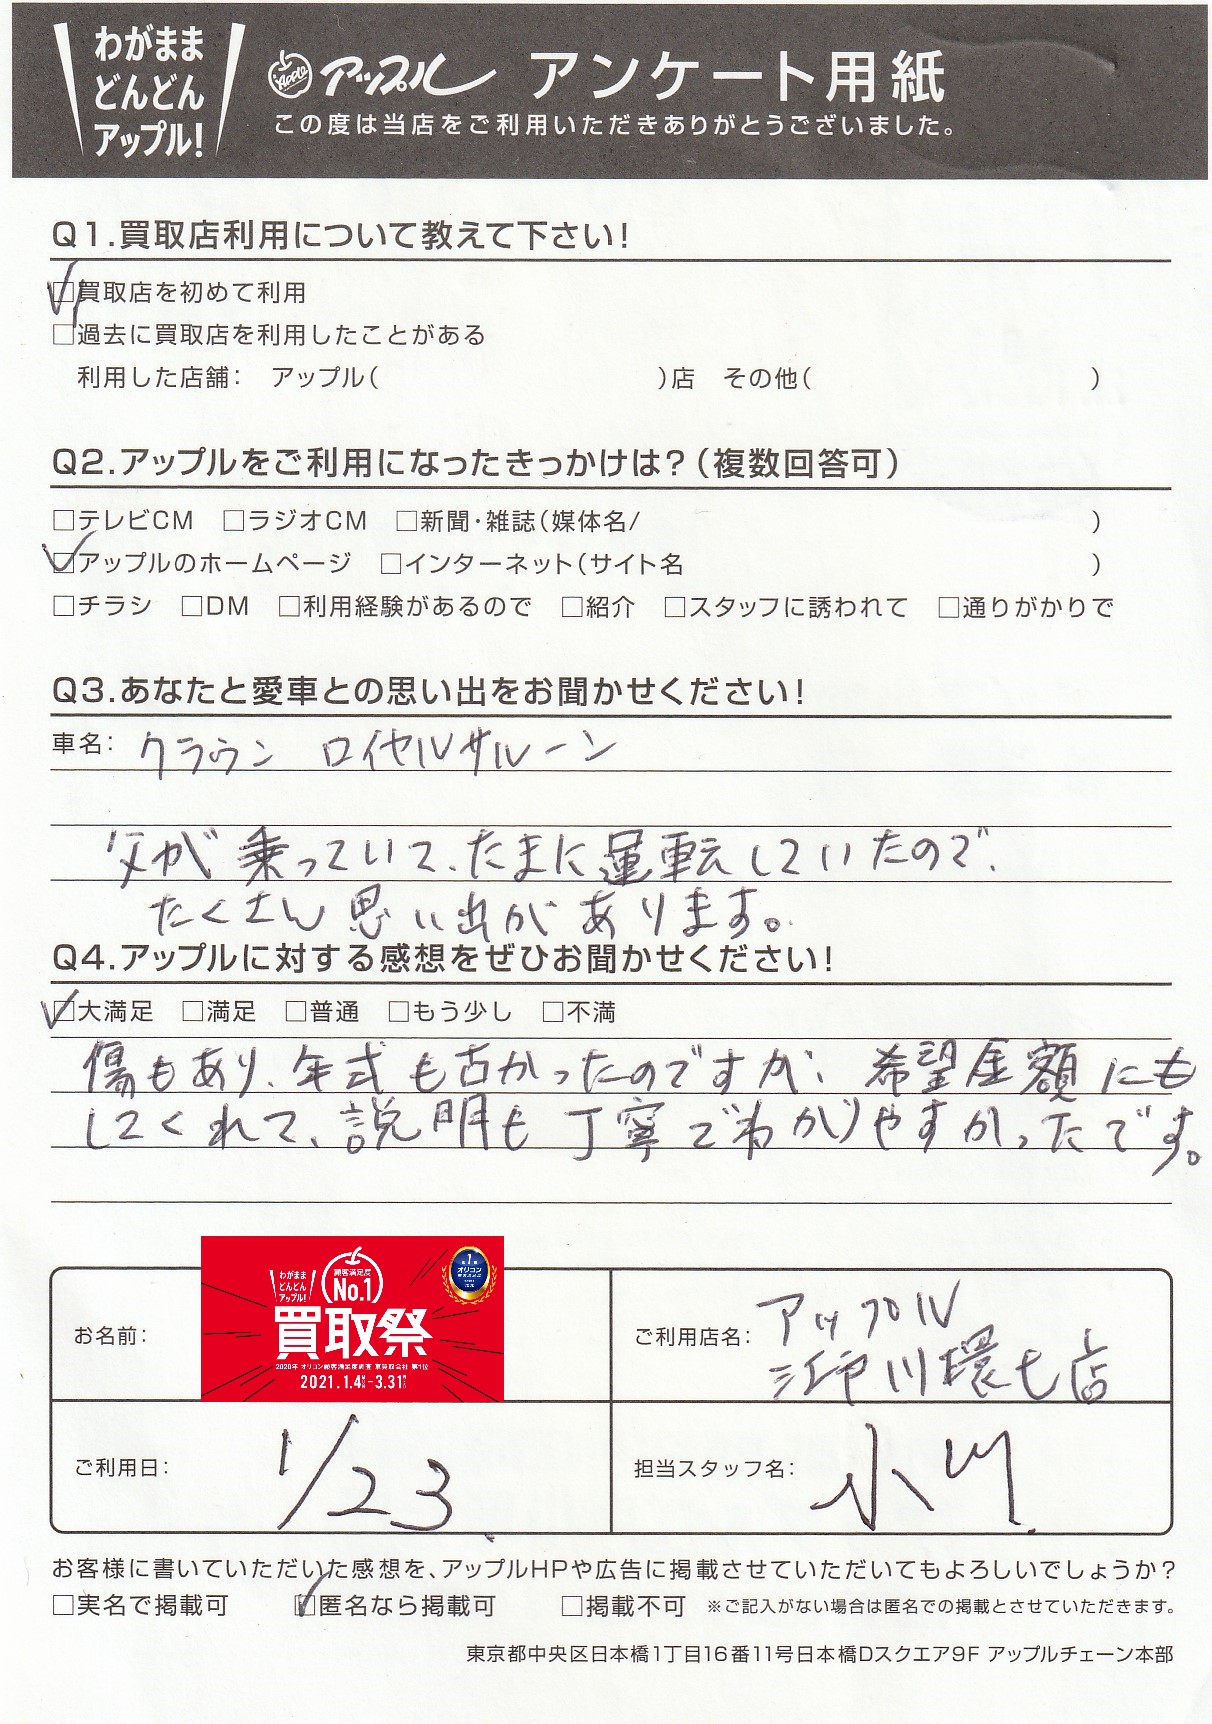 わがまま
どんどん
アップル!
Apple アップル アンケート用紙
この度は当店をご利用いただきありがとうございました。
Q1.買取店利用について教えて下さい!
□買取店を初めて利用
□過去に買取店を利用したことがある
利用した店舗: アップル( )店 その他( )
Q2.アップルをご利用になったきっかけは?(複数回答可)
□テレビCM □ラジオCM □新聞・雑誌(媒体名/ )
□アップルのホームページ □インターネット(サイト名 )
□チラシ □DM □利用経験があるので □紹介 □スタッフに誘われて □通りがかりで
Q3.あなたと愛車との思い出をお聞かせください!
車名: クラウン ロイヤルサルーン
父が乗っていて、たまに運転していたので、
たくさん思い出があります。
Q4.アップルに対する感想をぜひお聞かせください!
□大満足 □満足 □普通 □もう少し □不満
傷もあり、年式も古かったのですが、希望金額にも
してくれて、説明も丁寧でわかりやすかったです。
お名前:
わがまま
どんどん
アップル!
顧客満足度
No.1
第1位
オリコン
買取祭
2020年 オリコン顧客満足度調査 車買取会社 第1位
2021.1.4-3.31
ご利用店名: アップル
江戸川環七店
ご利用日: 1/23
担当スタッフ名: 小川
お客様に書いていただいた感想を、アップルHPや広告に掲載させていただいてもよろしいでしょうか?
□実名で掲載可 □匿名なら掲載可 □掲載不可 ※ご記入がない場合は匿名での掲載とさせていただきます。
東京都中央区日本橋1丁目16番11号日本橋Dスクエア9F アップルチェーン本部